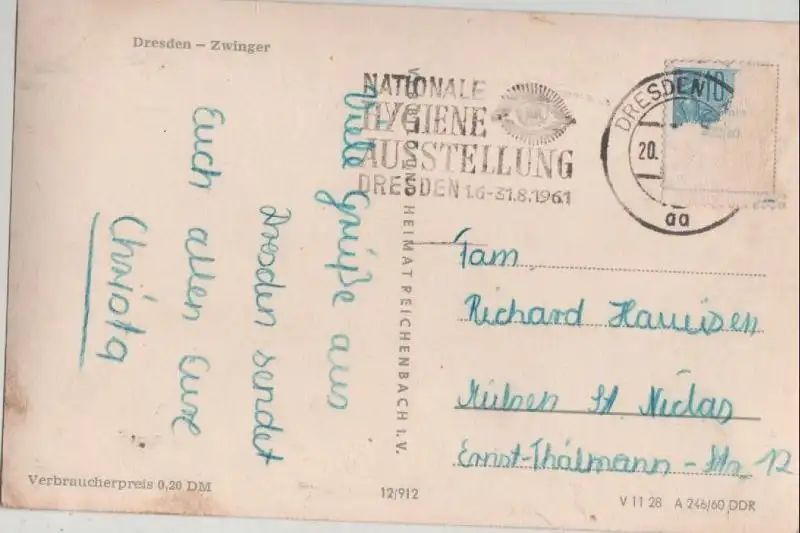 Dresden – Zwinger
NATIONALE
HYGIENE
AUSSTELLUNG
DRESDEN 1.6-31.8.1961
DRESDEN
20.
aa
10
Viele Grüße aus
Dresden sendet
Euch allen Eure
Christa
HEIMAT REICHENBACH I. V.
Fam
Richard
Mülsen St. Niclas
Ernst-Thälmann-Str. 12
Verbraucherpreis 0,20 DM
12/912
V 11 28 A 246/60 DDR